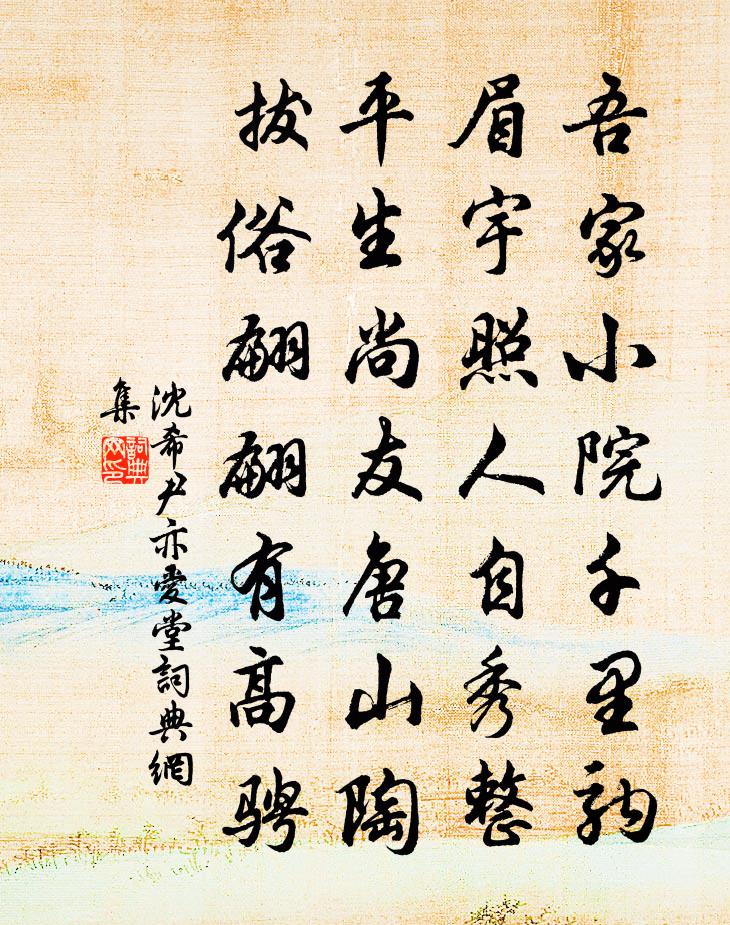 吾家小院千里駒
眉宇照人自秀整
平生尚友唐山陶
拔俗翩翩有高騁
沈希尹亦愛堂詞典網
集
詞典網印